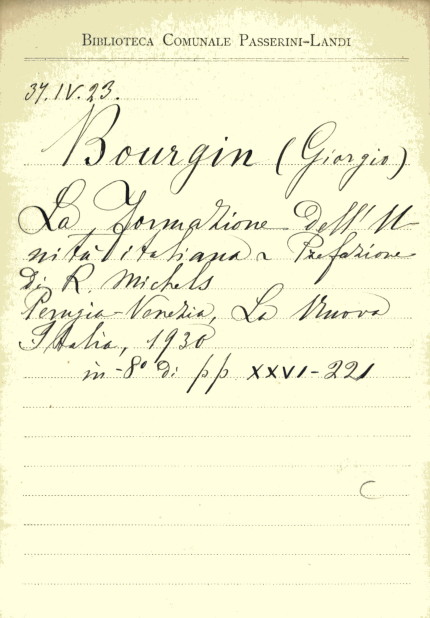 BIBLIOTECA COMUNALE PASSERINI-LANDI
37.IV.23.
Bourgin (Giorgio)
La Formazione dell'U-
nità italiana - Prefazione
di R. Michels
Perugia-Venezia, La Nuova
Italia, 1930
in-8° di pp XXVI-221
C